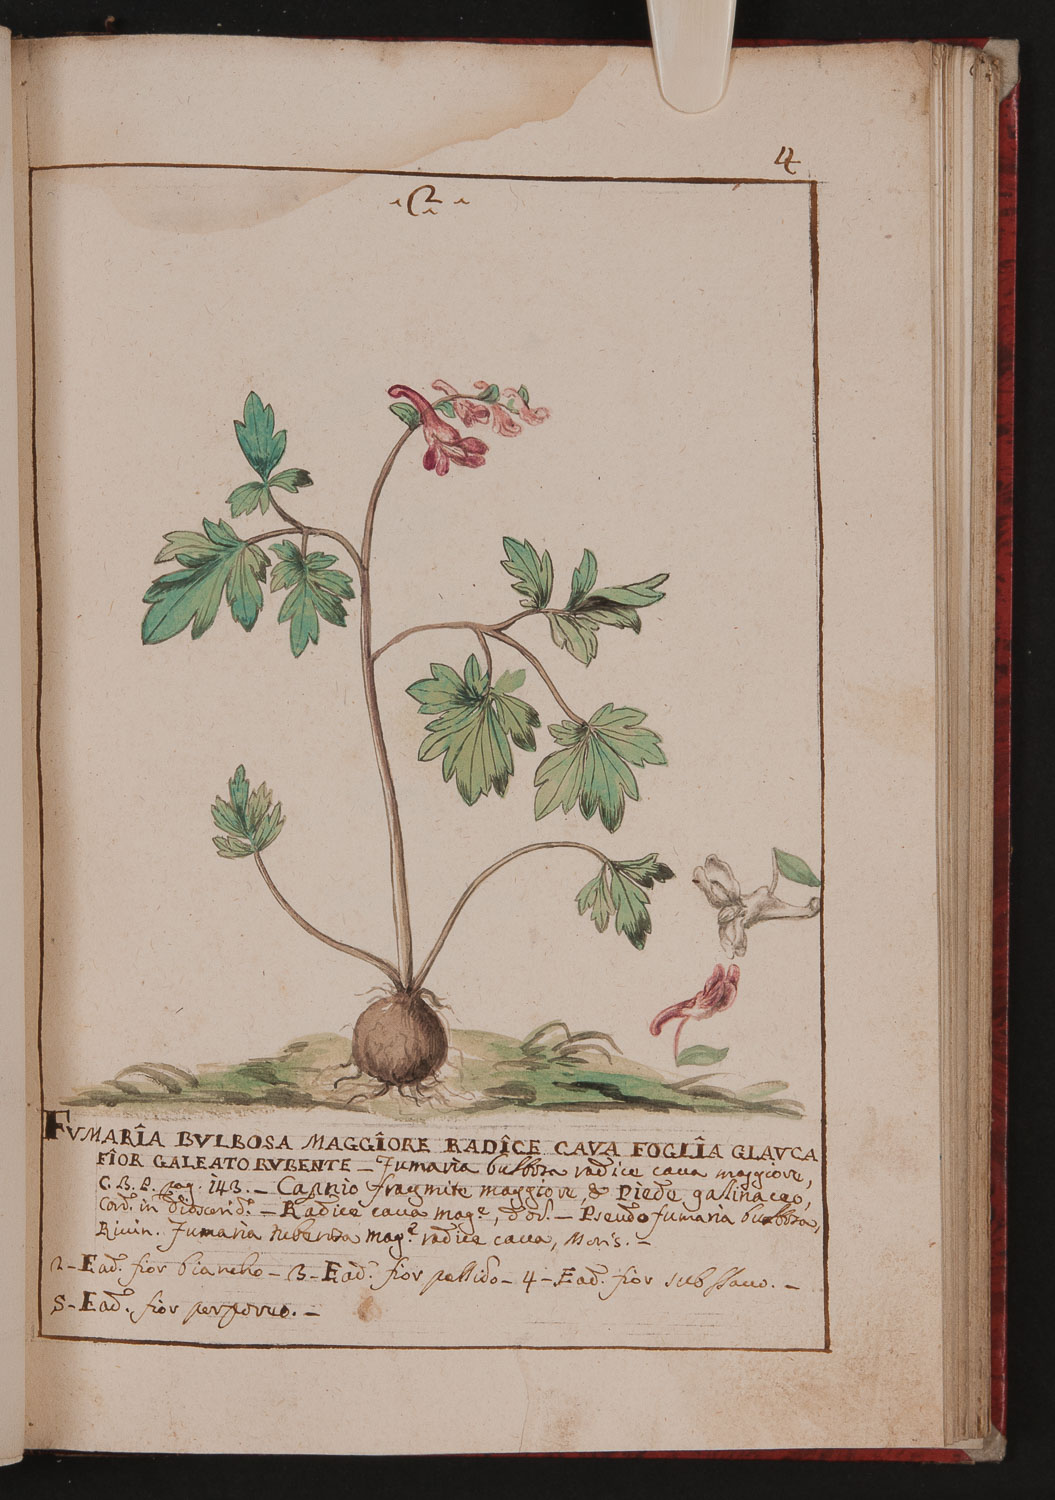 4
FVMARÎA BVLBOSA MAGGÎORE RADÎCE CAVA FOGLÎA GLAVCA
FÎOR GALEATO RVBENTE – Fumaria bulbosa radice caua maggiore,
C. B. P. pag. 143. – Capnio fragmite maggiore, & Piede galinaceo,
Cord. in dioscorid. – Radice caua mag.e, dod. – Pseudo fumaria bulbosa,
Riuin. Fumaria tuberosa mag.e radice caua, Moris. –
2 – Ead. fior biancho – 3 – Ead. fior pallido – 4 – Ead. fior subflauo. –
5 – Ead. fior porporeo. –